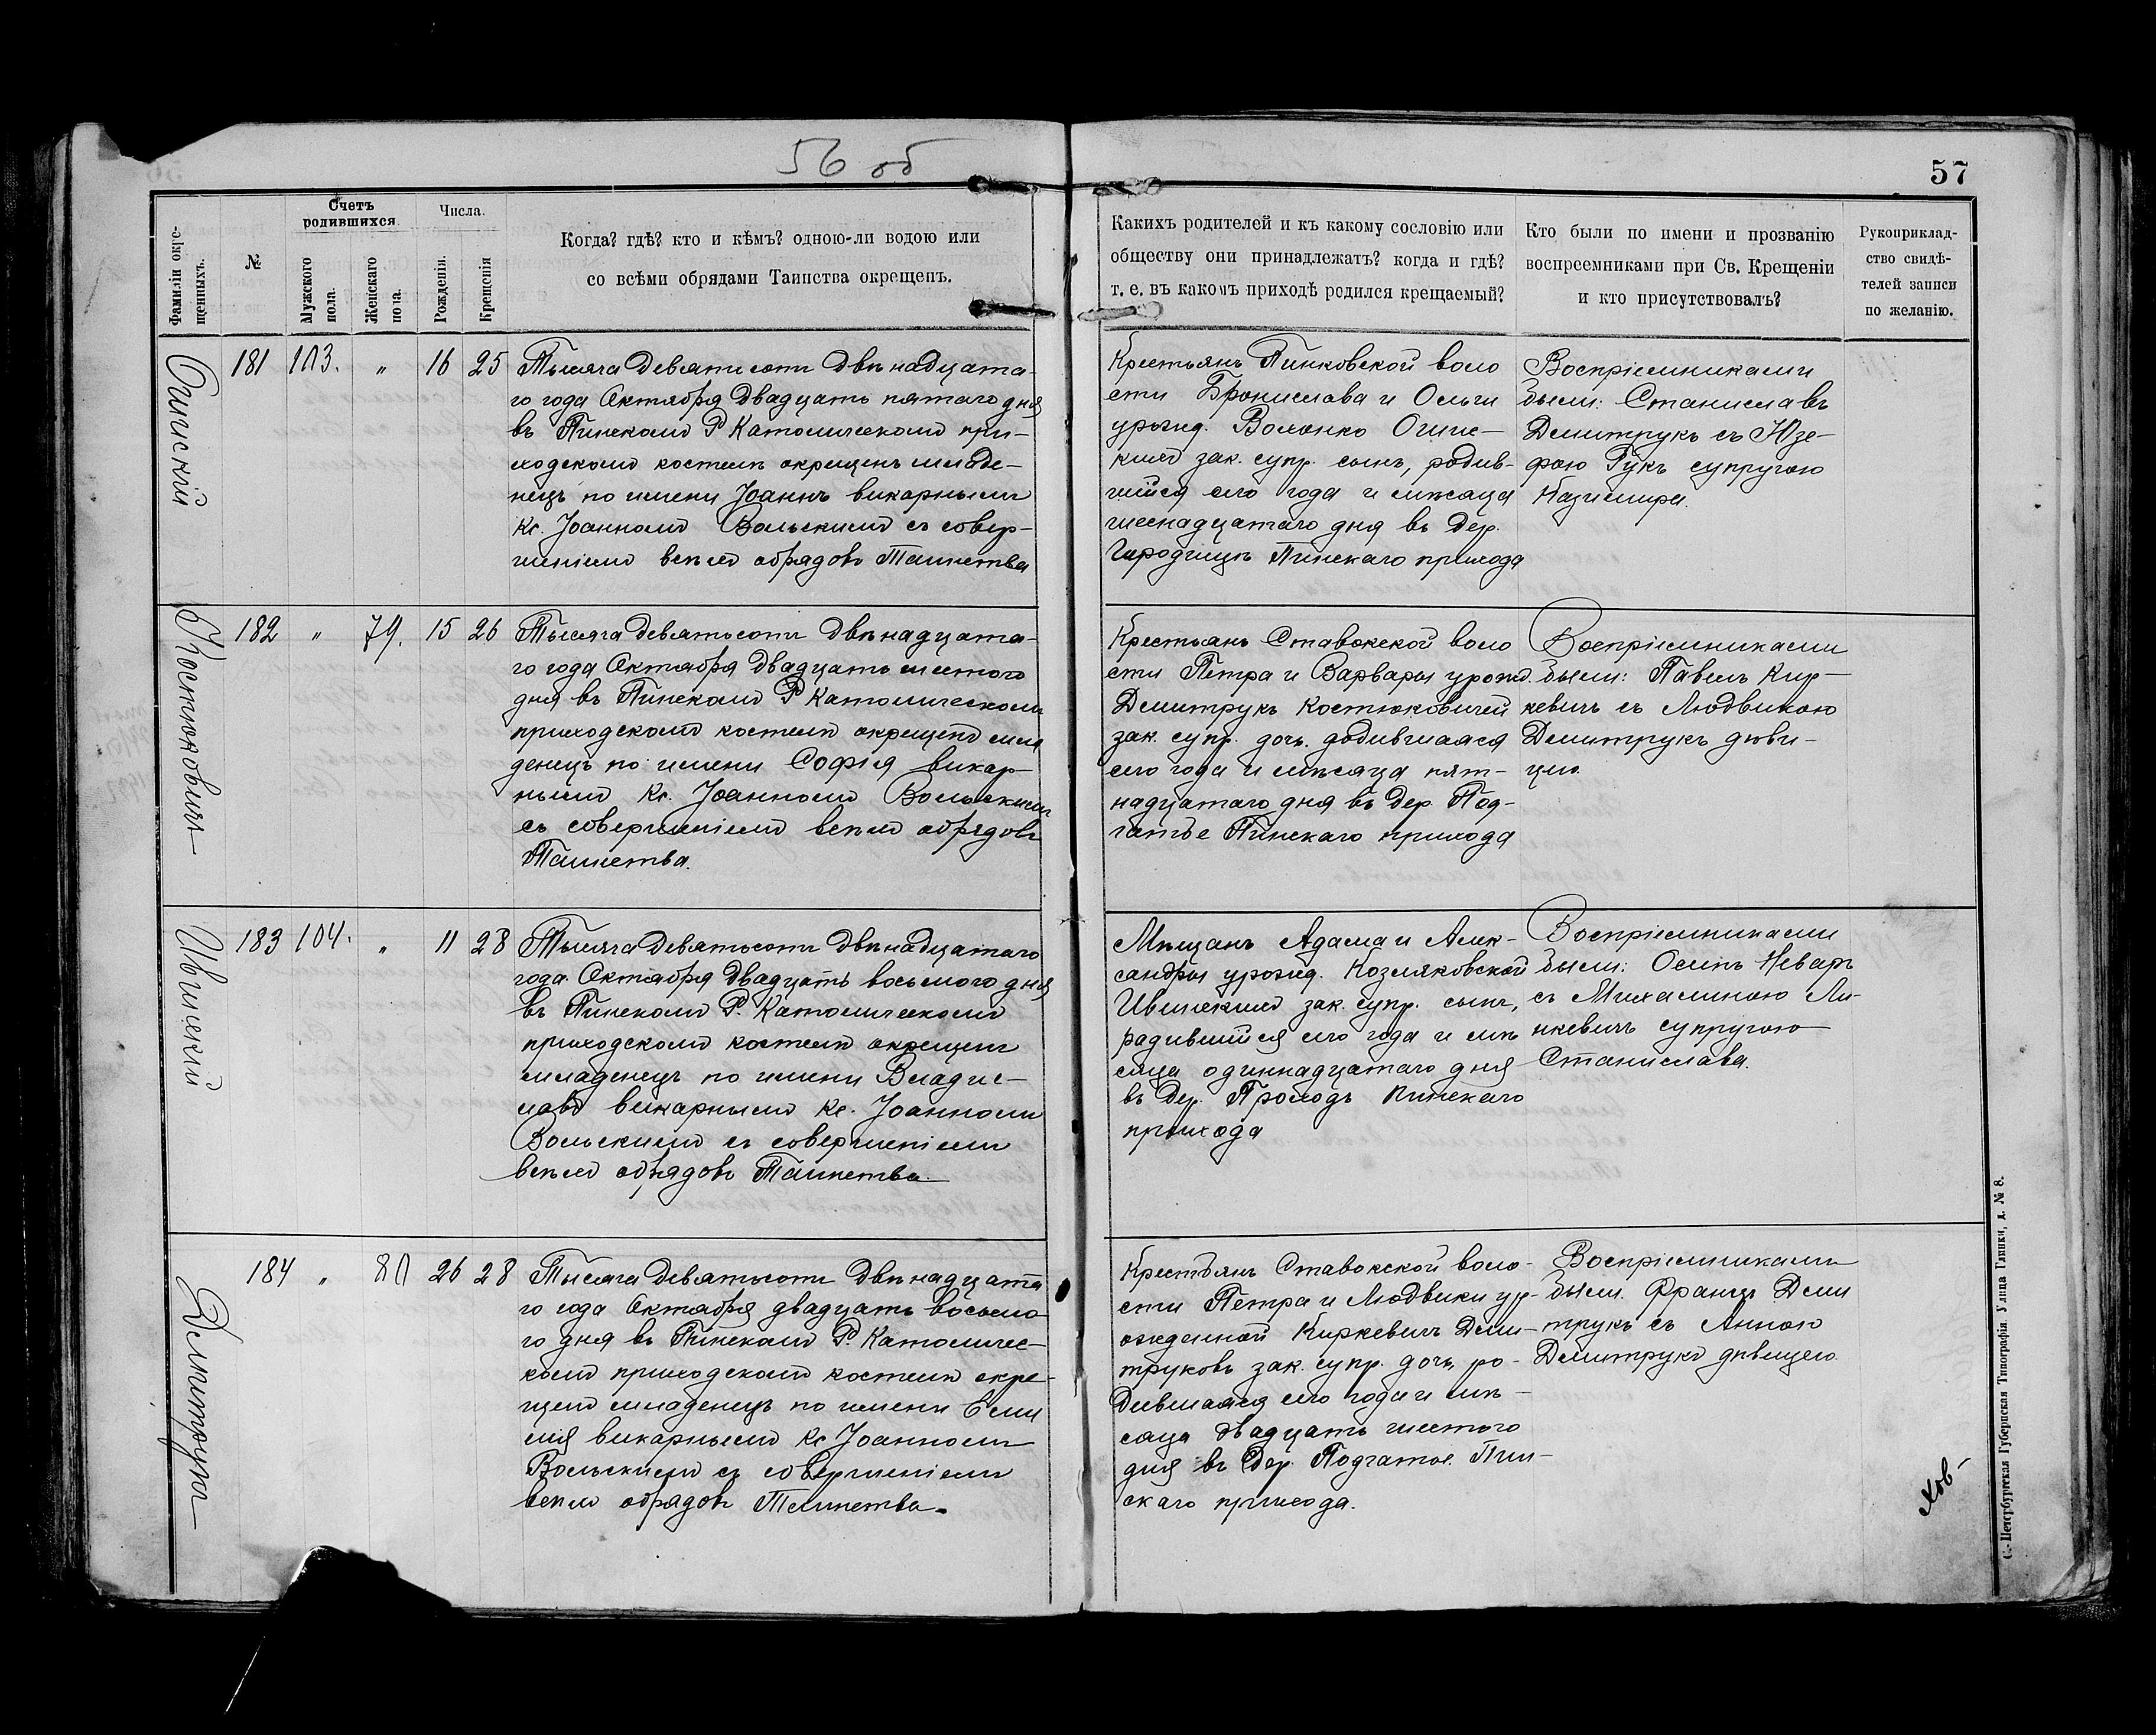 56 об
57
Фамиліи окре-
щенныхъ.
№
Счетъ
родившихся.
Мужского
пола.
Женскаго
пола.
Числа.
Рожденія.
Крещенія
Когда? гдѣ? кто и кѣмъ? одною-ли водою или
со всѣми обрядами Таинства окрещенъ.
Какихъ родителей и къ какому сословію или
обществу они принадлежатъ? когда и гдѣ?
т. е. въ какомъ приходѣ родился крещаемый?
Кто были по имени и прозванію
воспреемниками при Св. Крещеніи
и кто присутствовалъ?
Рукоприклад-
ство свидѣ-
телей записи
по желанію.
181 103. " 16 25
Тысяча девятисотъ двѣнадцата-
го года Октября двадцать пятаго дня
въ Пинскомъ Р Католическомъ при-
ходскомъ костелѣ окрещенъ младе-
нецъ по имени Іоаннъ викарнымъ
Кс. Іоанномъ Вольскимъ съ совер-
шеніемъ всѣхъ обрядовъ Таинства
Крестьянъ Пинковской воло
сти Бронислава и Ольги
урожд. Волонко
кихъ зак. супр. сынъ, родив-
шійся сего года и мѣсяца
шеснадцатаго дня въ дер.
Городищѣ Пинскаго прихода
Воспріемниками
были: Станиславъ
Дмитрукъ съ Юзе-
фою Гукъ супругою
Казимира.
Костюковичъ
182 " 79. 15 26
Тысяча девятьсотъ двѣнадцата-
го года Октября двадцать шестого
дня въ Пинскомъ Р Католическомъ
приходскомъ костелѣ окрещенъ мла
денецъ по имени Софія викар-
нымъ Кс. Іоанномъ Вольскимъ
съ совершеніемъ всѣхъ обрядовъ
Таинства.
Крестьянъ Ставокской воло
сти Петра и Варвары урожд.
Дмитрукъ Костюковичей
зак. супр. дочь. родившаяся
сего года и мѣсяца пят-
надцатаго дня въ дер. Под-
гатье Пинскаго прихода
Воспріемниками
были: Павелъ Кир-
кевичъ съ Людвикою
Дмитрукъ дѣви-
цею.
Ивинскій
183 104. " 11 28
Тысяча девятьсотъ двѣнадцатаго
года Октября двадцать восьмого дня
въ Пинскомъ Р. Католическомъ
приходскомъ костелѣ окрещенъ
младенецъ по имени Владис-
лавъ викарнымъ Кс. Іоанномъ
Вольскимъ съ совершеніемъ
всѣхъ обрядовъ Таинства.
Мѣщанъ Адама и Алек-
сандры урожд. Козляковской
Ивинскихъ зак. супр. сынъ,
родившійся сего года и мѣ
сяца одиннадцатаго дня
въ дер. Пинскаго
прихода
Воспріемниками
были: Осипъ Неваръ
съ Михалиною Ли-
нкевичъ супругою
Станислава.
Дмитрукъ
184 " 80 26 28
Тысяча девятьсотъ двѣнадцата
го года Октября двадцать восьмо
го дня въ Пинскомъ Р. Католичес-
комъ приходскомъ костелѣ окре-
щенъ младенецъ по имени Еми
лія викарнымъ Кс Іоанномъ
Вольскимъ съ совершеніемъ
всѣхъ обрядовъ Таинства.
Крестьянъ Ставокской воло-
сти Петра и Людвики ур-
ожденной Киркевичъ Дми-
труковъ зак. супр. дочь, ро-
дившаяся сего года и мѣ-
сяца двадцать шестого
дня въ дер. Подгатье. Пин-
скаго прихода.
Воспріемниками
были. Францъ Дми
трукъ съ Анною
Дмитрукъ дѣвицею.
С.-Петербургская Губернская Типографія. Улица Глинки, д. № 8.